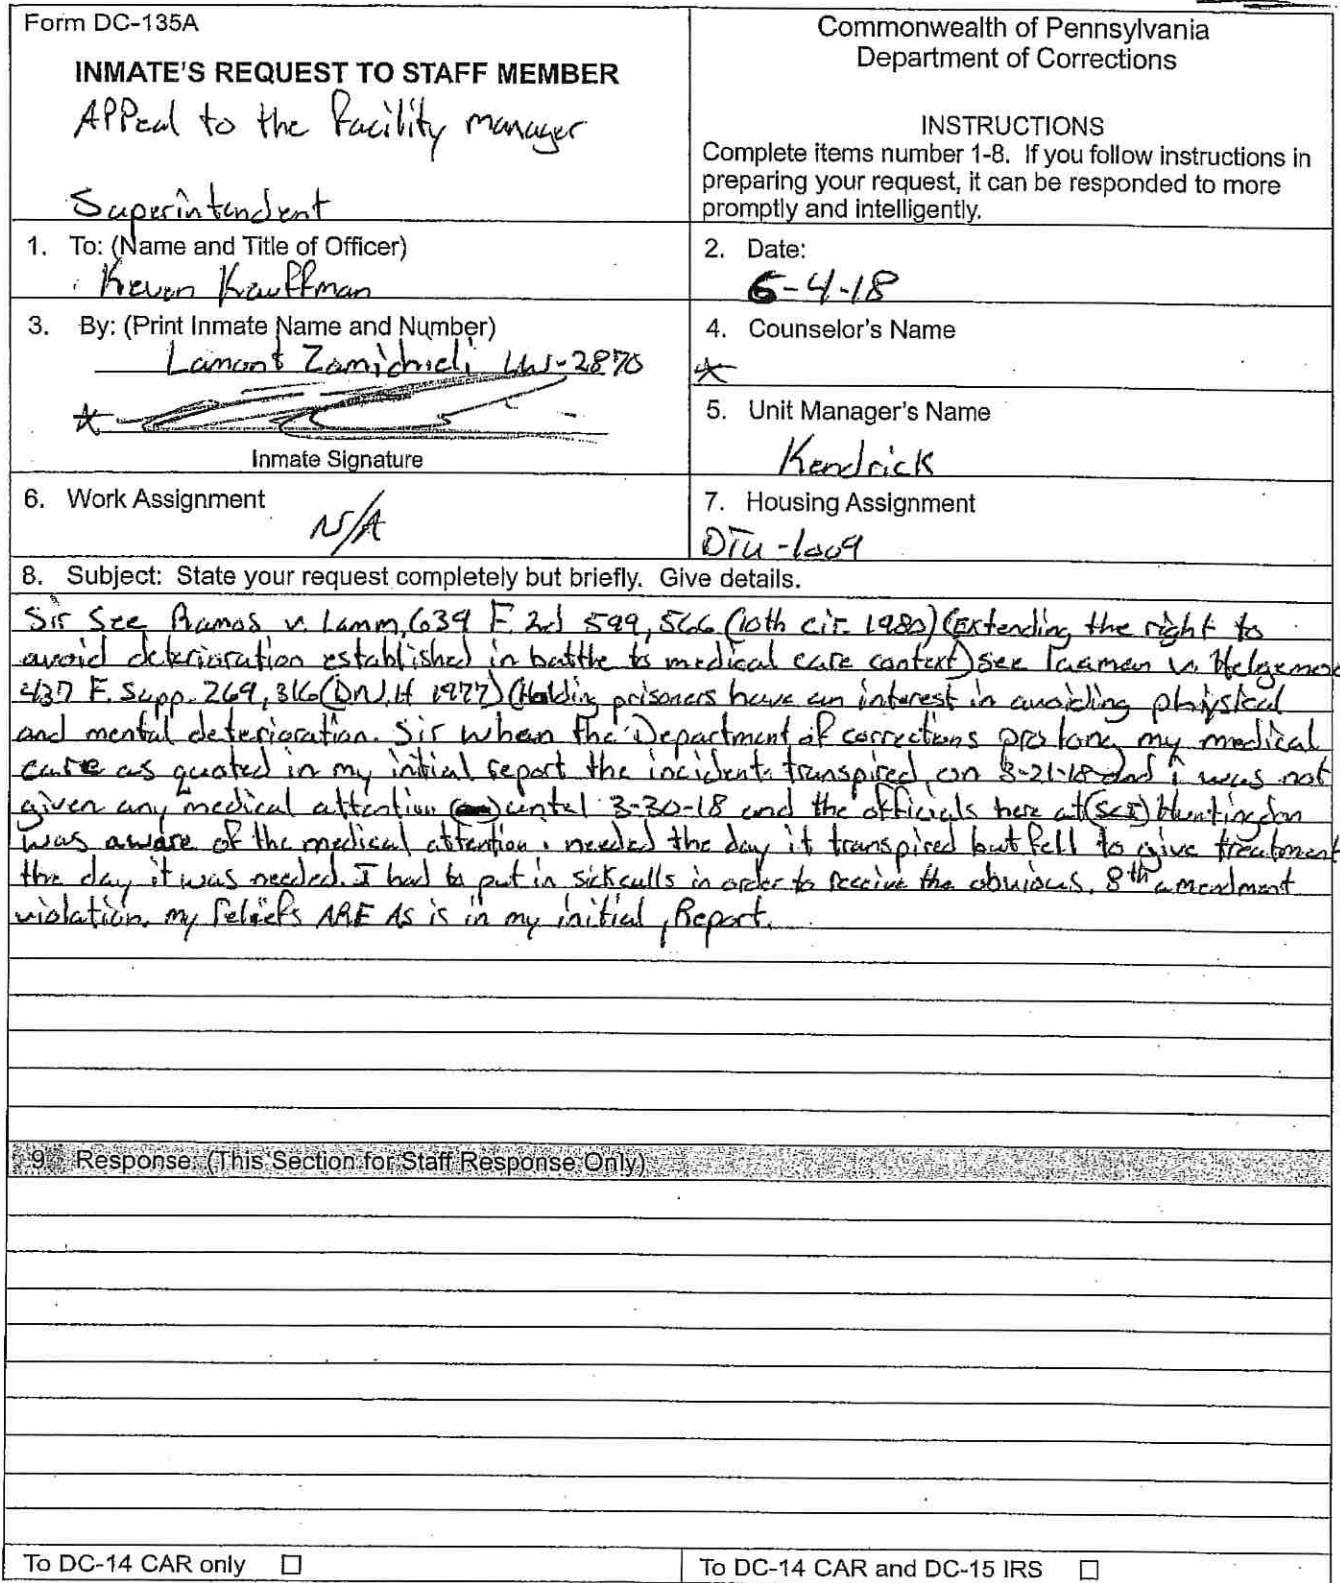 Form DC-135A
INMATE'S REQUEST TO STAFF MEMBER
APPeal to the facility manager
Superintendent
Commonwealth of Pennsylvania
Department of Corrections
INSTRUCTIONS
Complete items number 1-8. If you follow instructions in
preparing your request, it can be responded to more
promptly and intelligently.
1. To: (Name and Title of Officer)
Keven Kauffman
2. Date:
6-4-18
3. By: (Print Inmate Name and Number)
Lamont Zamichieli LW-2870
*
Inmate Signature
4. Counselor's Name
*
5. Unit Manager's Name
Kendrick
6. Work Assignment
N/A
7. Housing Assignment
DTU-1009
8. Subject: State your request completely but briefly. Give details.
Sir See Ramos v. Lamm, 639 F. 2d 599, 566 (10th cir. 1980) (Extending the right to
avoid deterioration established in battle to medical care context) see v. Helgemoe
437 F. Supp. 269, 316 (D.N.H 1977) (Holding prisoners have an interest in avoiding physical
and mental deterioration. Sir when the Department of corrections prolong my medical
care as quoted in my initial report the incident transpired on 3-21-18 and i was not
given any medical attention until 3-30-18 and the officials here at (SCI) Huntingdon
was aware of the medical attention i needed the day it transpired but fell to give treatment
the day it was needed. I had to put in sickcalls in order to receive the obvious. 8th amendment
violation. my reliefs ARE AS is in my initial, Report.
9. Response: (This Section for Staff Response Only)
To DC-14 CAR only ☐
To DC-14 CAR and DC-15 IRS ☐